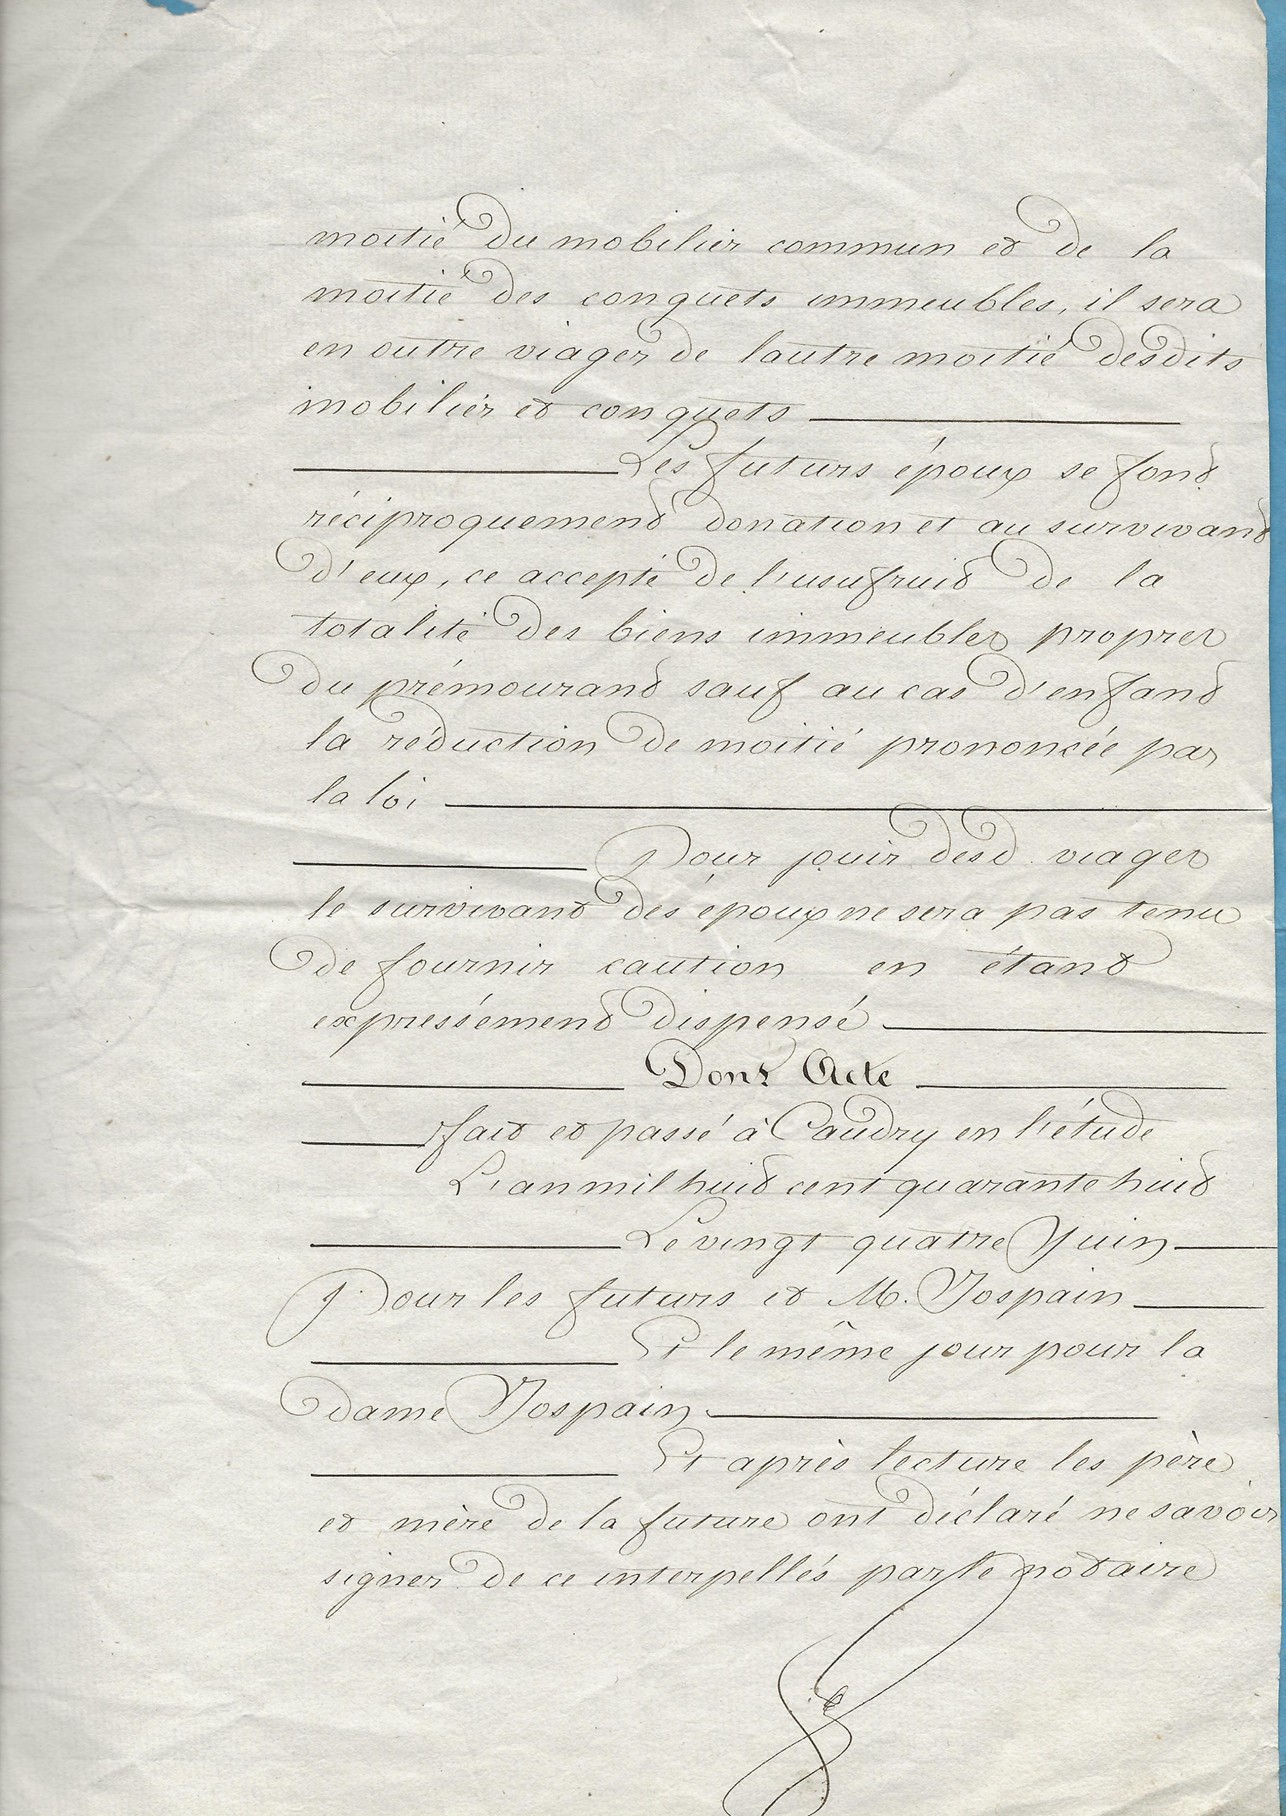 moitié du mobilier commun et de la
moitié des conquets immeubles, il sera
en outre viager de lautre moitié desdits
mobilier et conquets
Les futurs époux se font
réciproquement donation et au survivant
d'eux, ce accepté de l'usufruit de la
totalité des biens immeubles propres
du prémourant sauf au cas d'enfant
la réduction de moitié prononcée par
la loi
Pour jouir desd. viager
le survivant des époux ne sera pas tenu
de fournir caution en étant
expressément dispensé
Dont Acte
fait et passé à Caudry en l'étude
L'an mil huit cent quarante huit
Le vingt quatre Juin
Pour les futurs et M. Jospain
Et le même jour pour la
dame Jospain
Et après lecture les père
et mère de la future ont déclaré ne savoir
signer de ce interpellés par le notaire